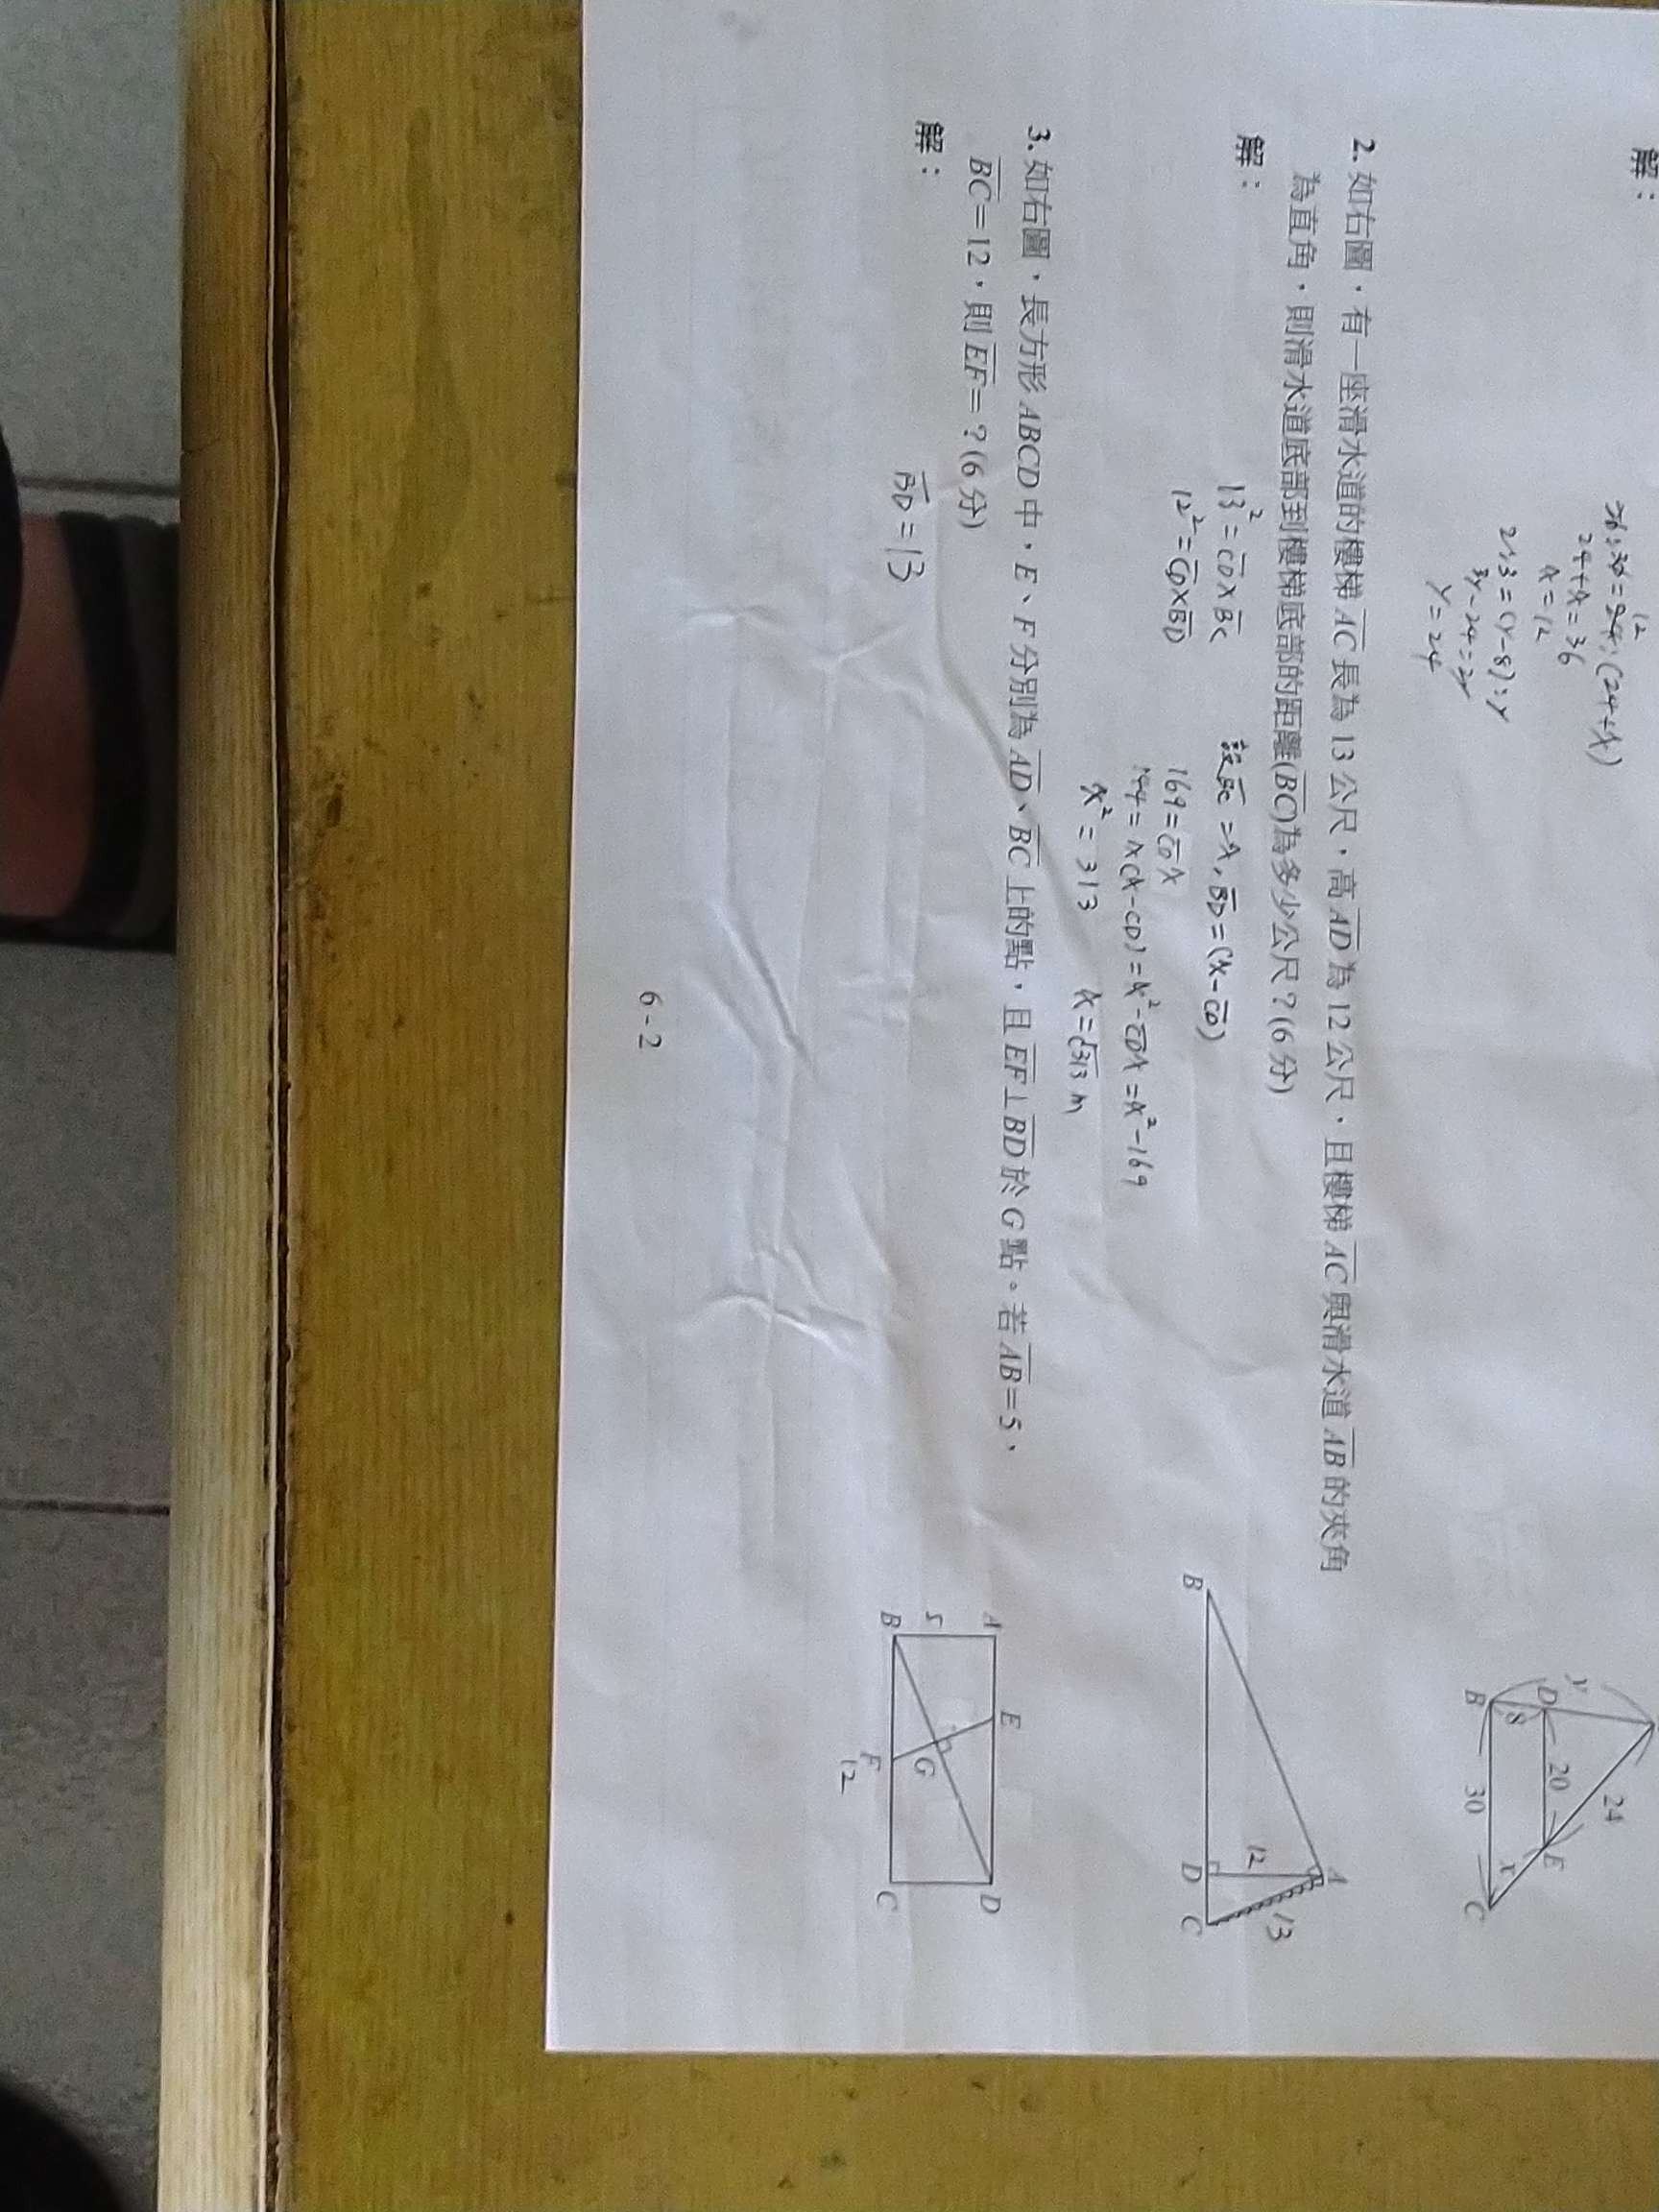 解：
12
24+x=36
x=12
2:3=(y-8):y
3y-24=2y
y=24
y
24
D
20
E
8
x
B
30
C
2. 如右圖，有一座滑水道的樓梯 AC 長為 13 公尺，高 AD 為 12 公尺，且樓梯 AC 與滑水道 AB 的夾角
為直角，則滑水道底部到樓梯底部的距離(BC)為多少公尺？(6 分)
解：
13²=CD×BC
12²=CD×BD
設BC=x，BD=(x-CD)
169=CDx
144=x(x-CD)=x²-CDx=x²-169
x²=313
x=√313 m
A
12
13
B
D
C
3. 如右圖，長方形 ABCD 中，E、F 分別為 AD、BC 上的點，且 EF⊥BD 於 G 點。若 AB=5、
BC=12，則 EF=？(6 分)
解：
BD=13
A
E
D
5
G
B
F
C
12
6-2